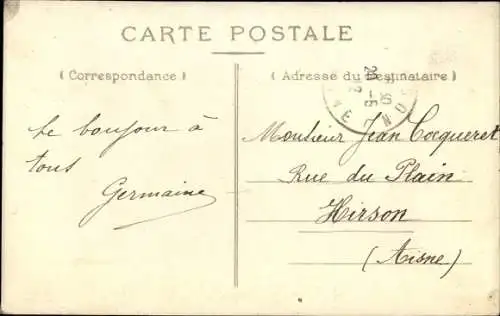 CARTE POSTALE
( Correspondance )
( Adresse du Destinataire )
Le bonjour à
tous
Germaine
Monsieur Jean Cocqueret
Rue du Plain
Hirson
(Aisne)